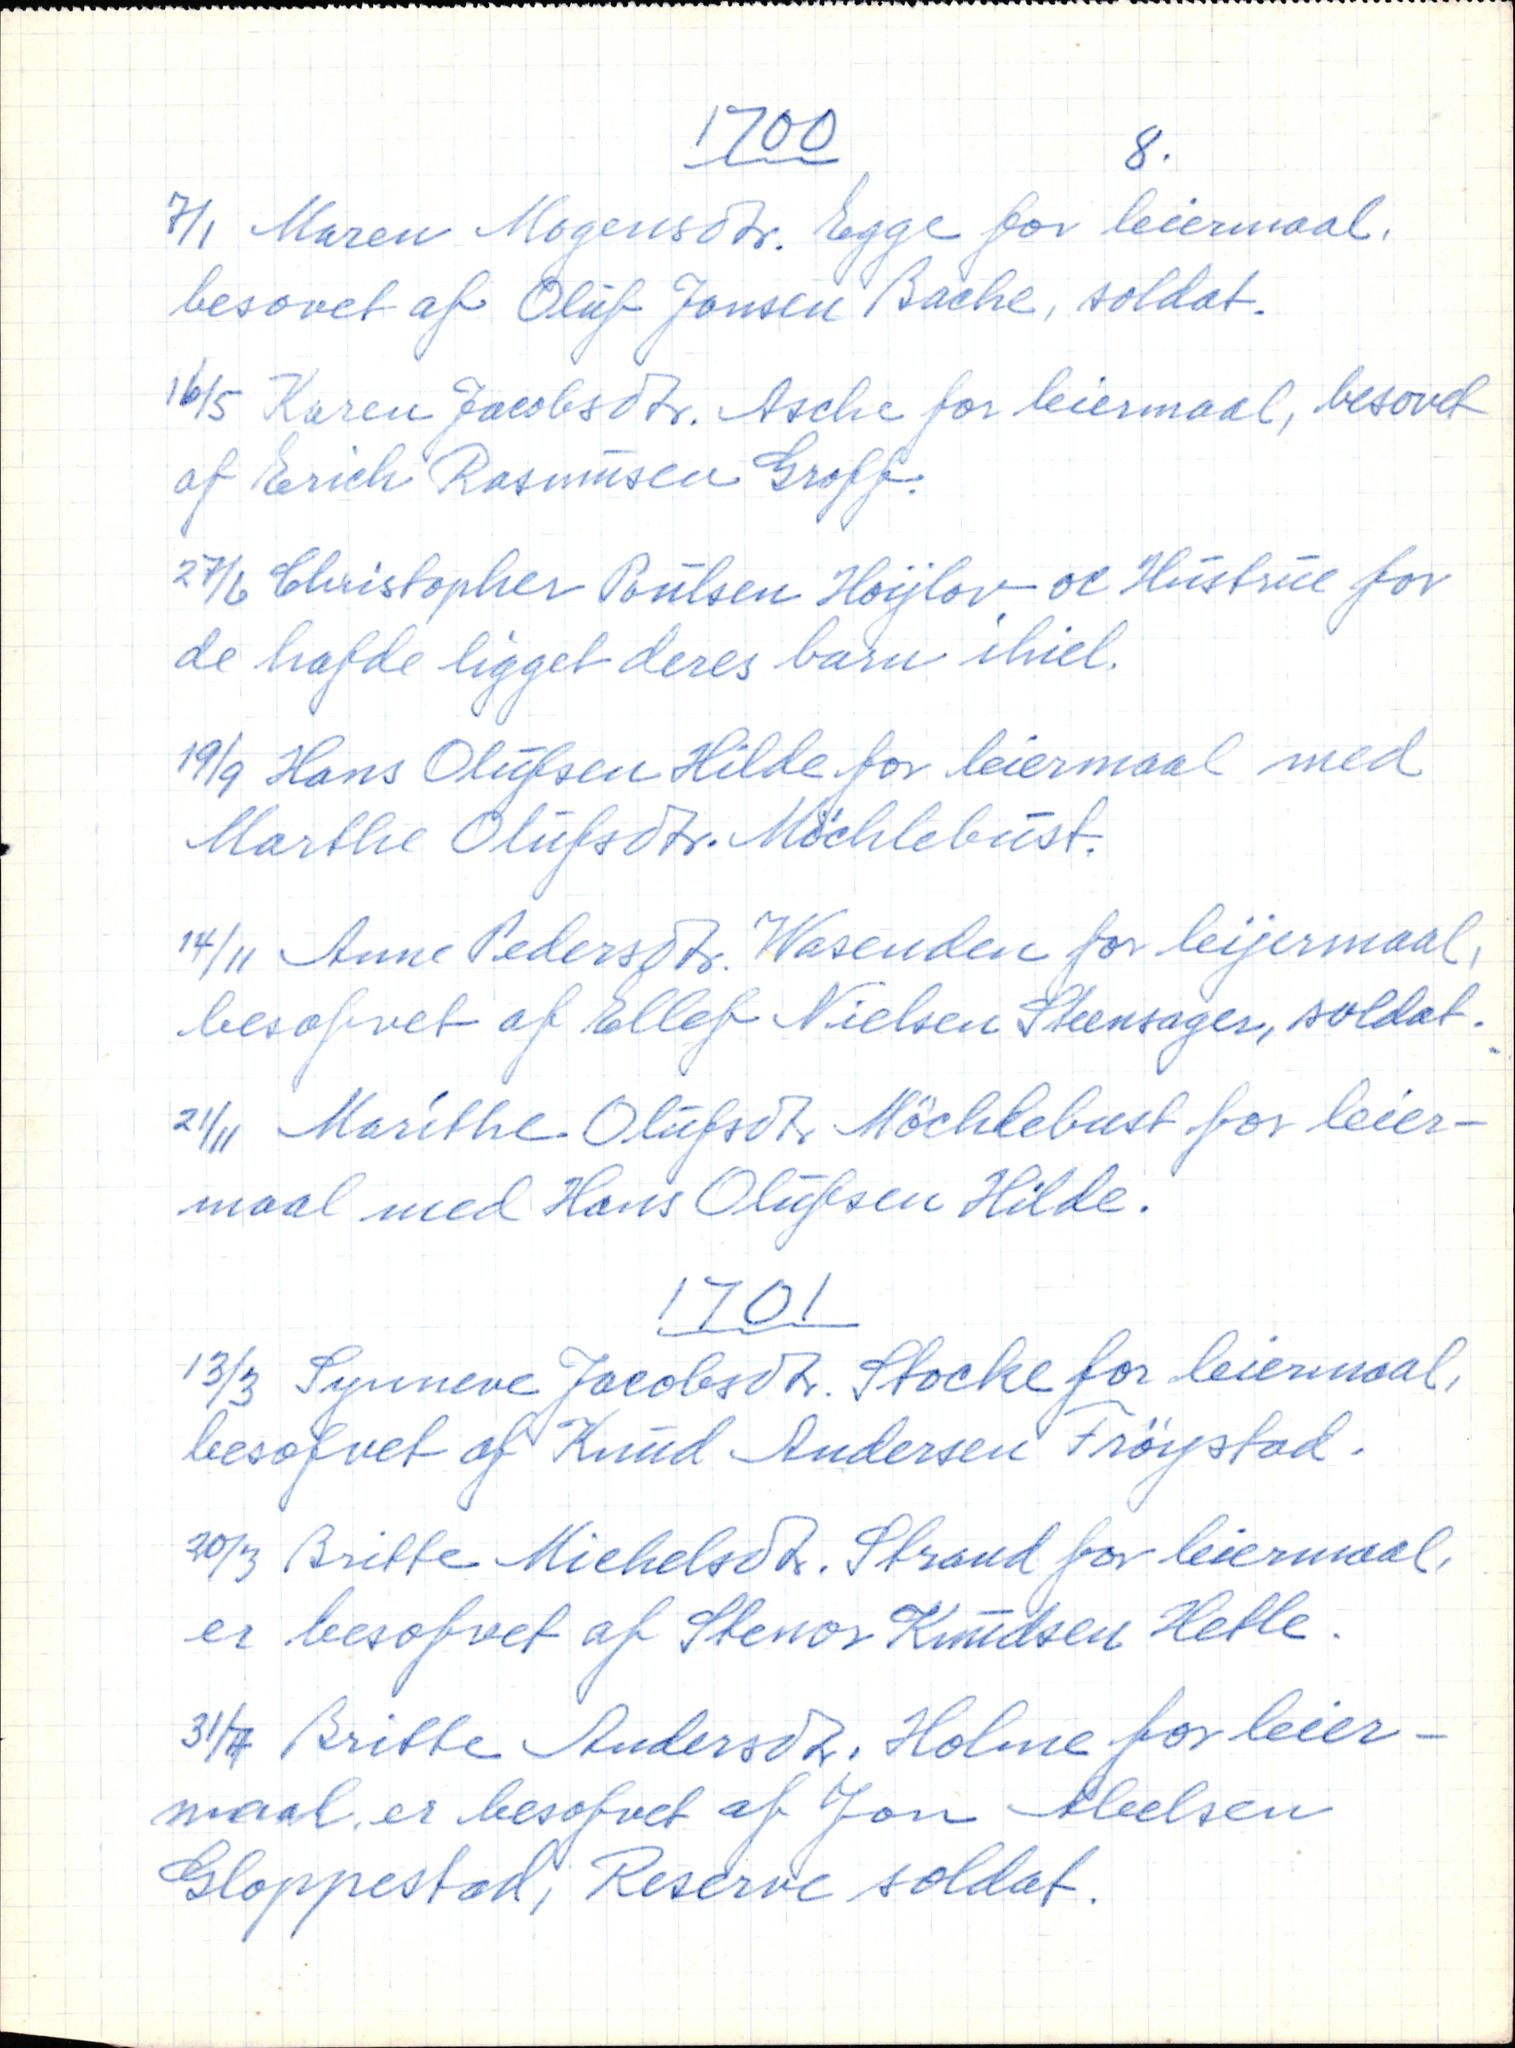 1700
8.
7/1 Maren Mogensdtr. Egge for leiermaal,
besovet af Oluf Jonsen Bache, soldat.
16/5 Karen Jacobsdtr. Asche for leiermaal, besovet
af Erich Rasmusen Groff.
27/6 Christopher Poulsen Hoÿlov oc Hustrue for
de hafde ligget deres barn ihiel.
19/9 Hans Olufsen Hilde for leiermaal med
Marthe Olufsdtr. Möchlebust.
14/11 Anne Pedersdtr. Wasenden for leijermaal,
besofvet af Ellef Nielsen Steensager, soldat.
21/11 Marithe Olufsdtr Möchlebust for leier-
maal med Hans Olufsen Hilde.
1701
13/3 Synneve Jacobsdtr. Stocke for leiermaal,
besofvet af Knud Andersen Fröystad.
20/3 Britte Michelsdtr. Strand for leiermaal,
er besofvet af Stenor Knudsen Hetle.
31/7 Britte Andersdtr. Holme for leier-
maal, er besofvet af Jon Abelsen
Gloppestad, Reserve soldat.